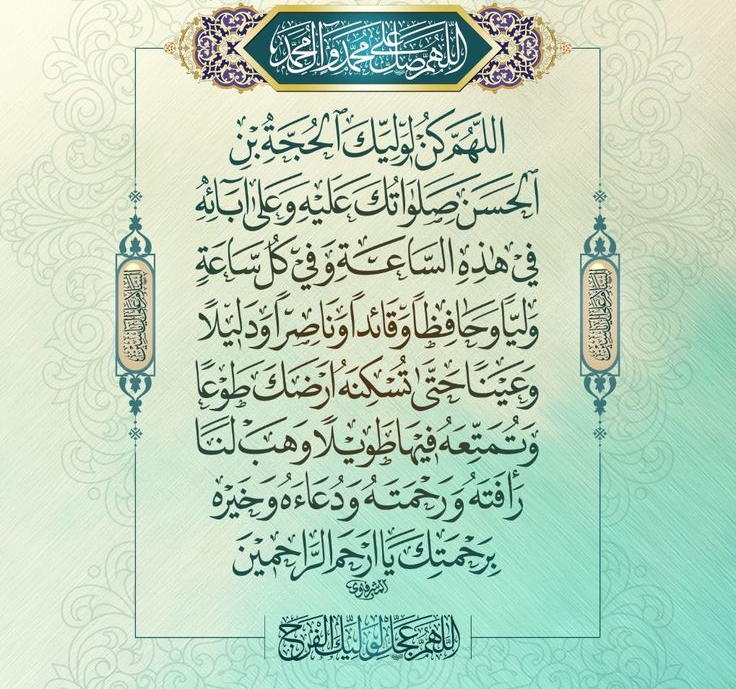 اللهم صل على محمد وآل محمد
اللّٰهُمَّ كُنْ لِوَلِيِّكَ ٱلْحُجَّةِ بْنِ
ٱلْحَسَنِ صَلَوَاتُكَ عَلَيْهِ وَعَلىٰ آبَآئِهِ
فِي هٰذِهِ السَّاعَةِ وَفِي كُلِّ سَاعَةٍ
وَلِيًّا وَحَافِظاً وَقَائِداً وَنَاصِراً وَدَلِيْلًا
وَعَيْنًا حَتّىٰ تُسْكِنَهُ اَرْضَكَ طَوْعًا
وَتُمَتِّعَهُ فِيْهَا طَوِيْلًا وَهَبْ لَنَا
رَأْفَتَهُ وَرَحْمَتَهُ وَدُعَاءَهُ وَخَيْرَهُ
بِرَحْمَتِكَ يَا اَرْحَمَ الرَّاحِمِيْنَ
الشرفاوي
اللهم عجل لوليك الفرج